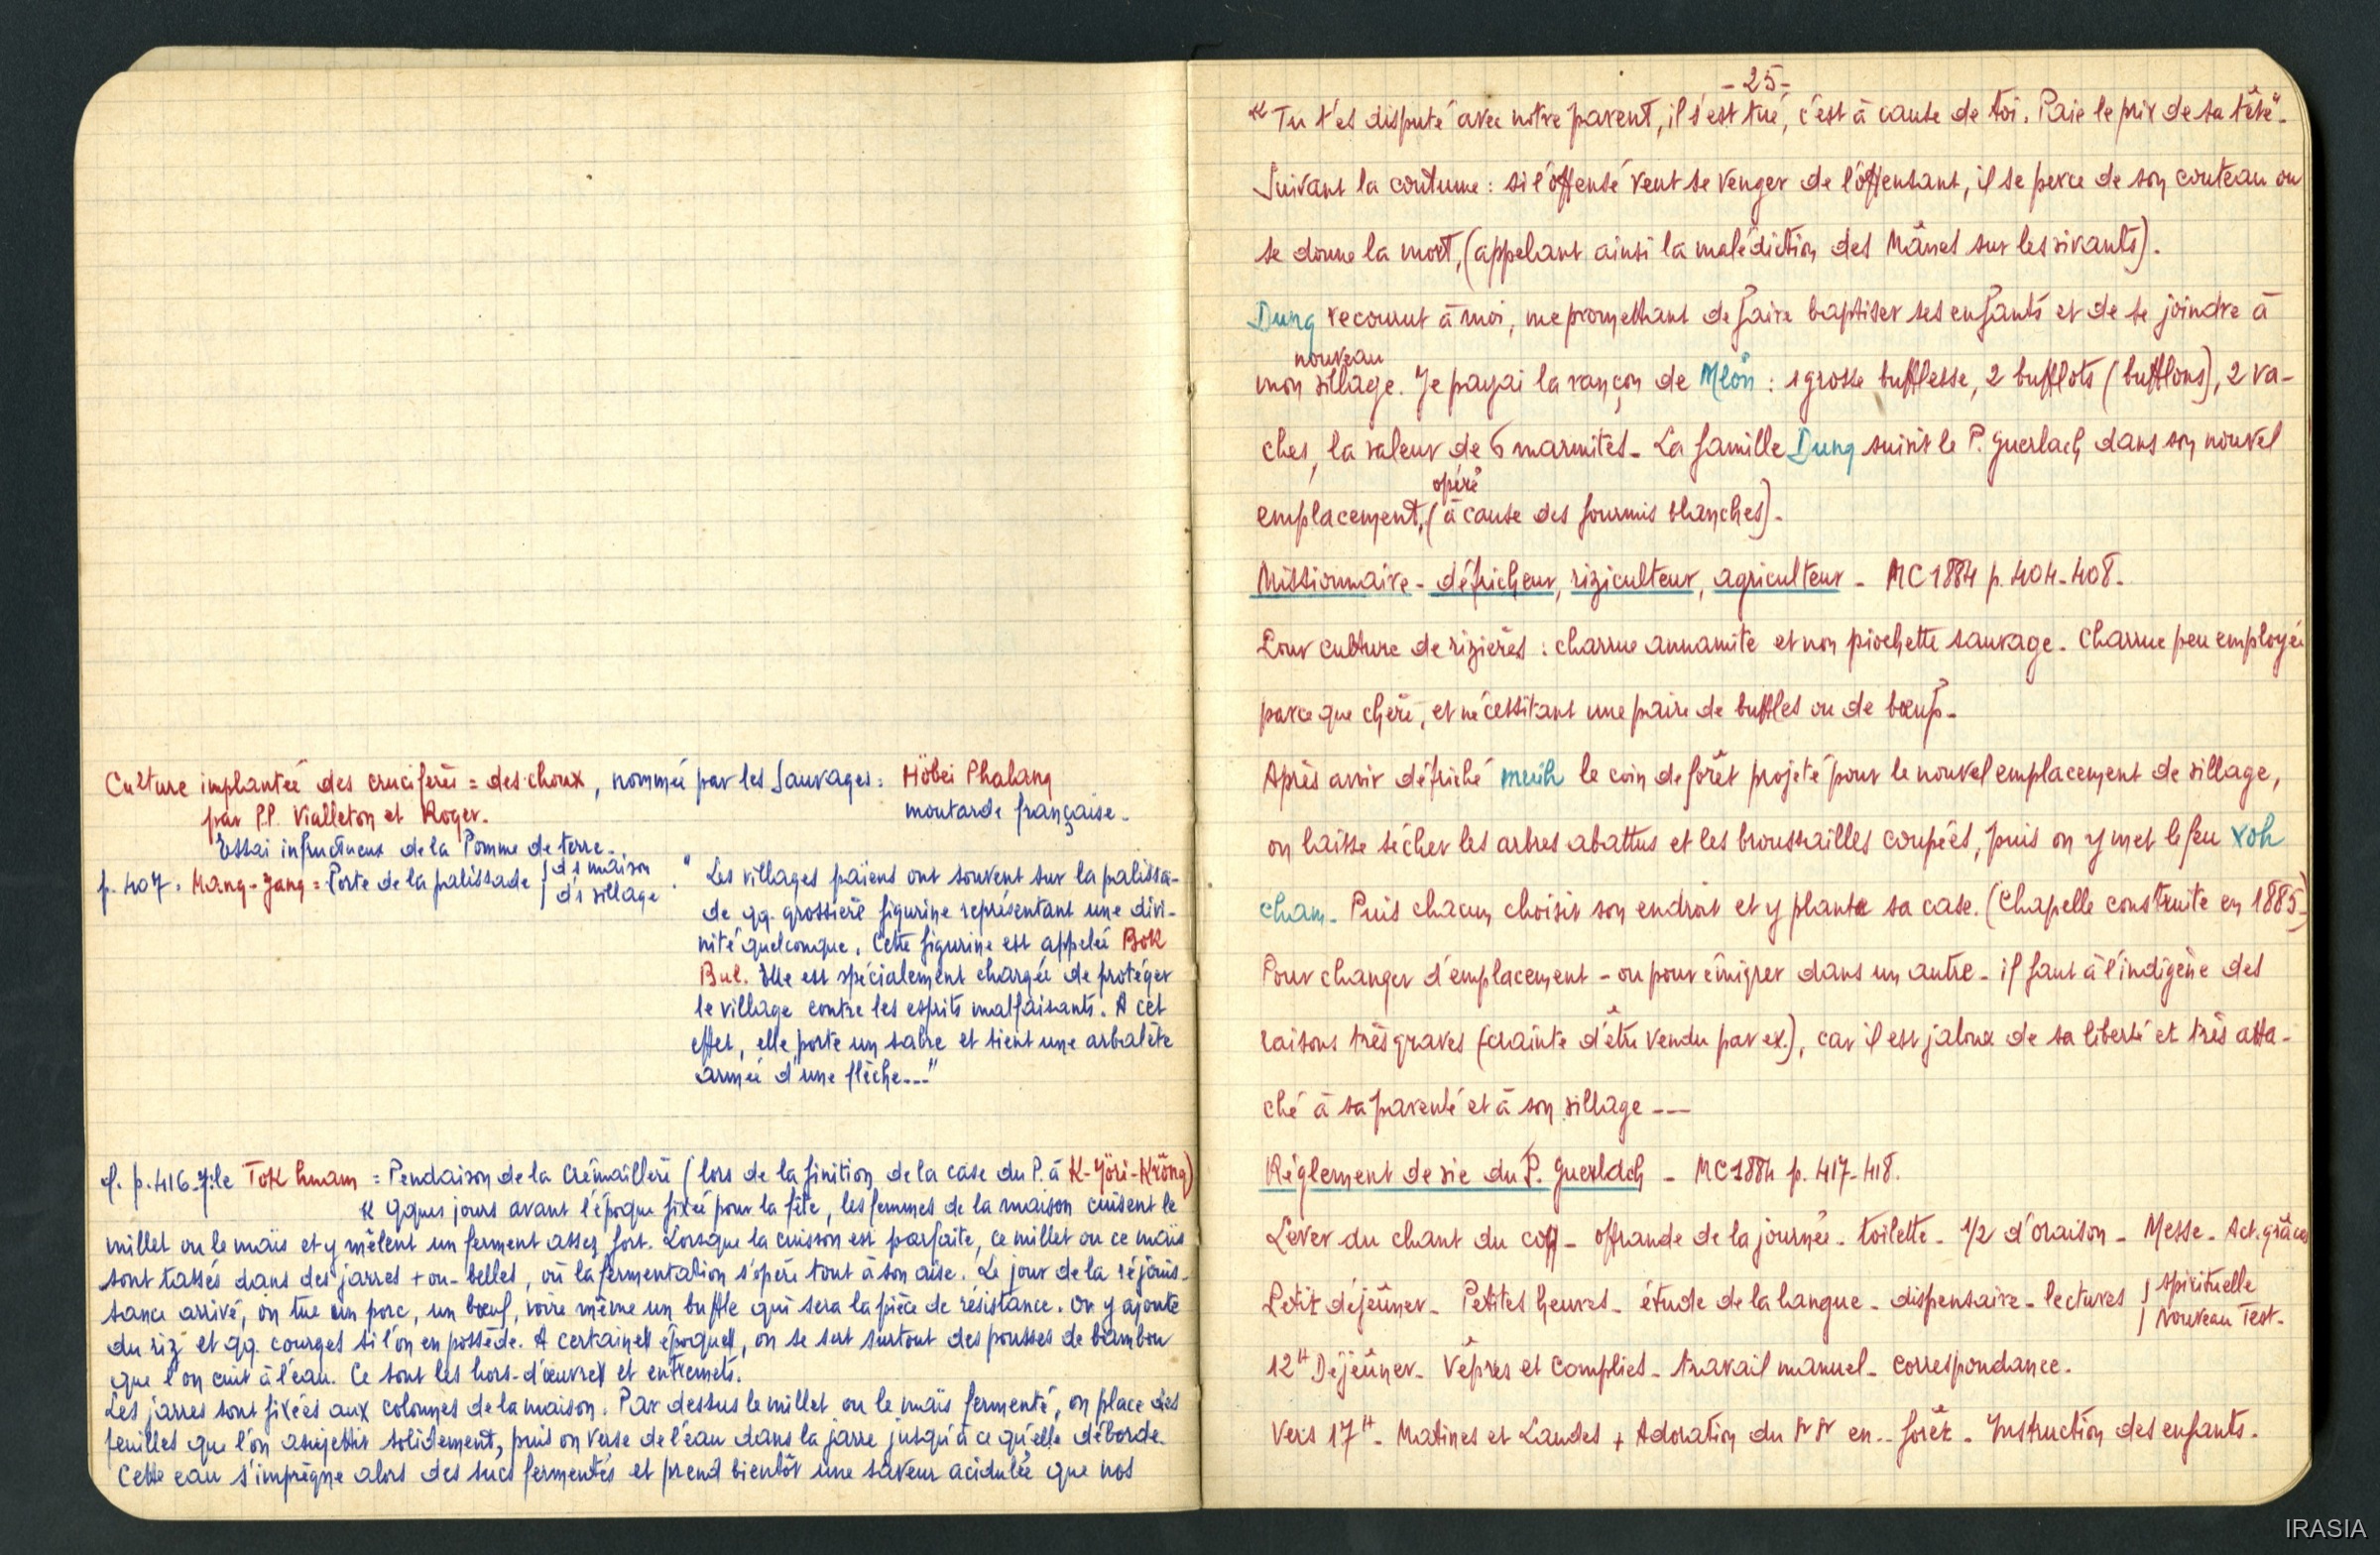 Culture implantée des crucifères = des choux, nommée par les Sauvages : Höbei Phalang
par PP. Vialleton et Roger. moutarde française.
Essai infructueux de la Pomme de terre.
p. 407 : Mang-Jang = Porte de la palissade { de maison
de village
" Les villages païens ont souvent sur la palissa-
de qq. grossière figurine représentant une divi-
nité quelconque. Cette figurine est appelée Bok
Bul. Elle est spécialement chargée de protéger
le village contre les esprits malfaisants. A cet
effet, elle porte un sabre et tient une arbalète
armée d'une flèche..."
cf. p. 416-7: le Tok hnam = Pendaison de la Crémaillère (lors de la finition de la case du P. à K-Jöri-Kröng)
« Qques jours avant l'époque fixée pour la fête, les femmes de la maison cuisent le
millet ou le maïs et y mêlent un ferment assez fort. Lorsque la cuisson est parfaite, ce millet ou ce maïs
sont tassés dans des jarres + ou - belles, où la fermentation s'opère tout à son aise. Le jour de la réjouis-
sance arrivé, on tue un porc, un bœuf, voire même un buffle qui sera la pièce de résistance. On y ajoute
du riz et qq. courges si l'on en possède. A certaines époques, on se sert surtout des pousses de bambou
que l'on cuit à l'eau. Ce sont les hors-d'œuvres et entremets.
Les jarres sont fixées aux colonnes de la maison. Par dessus le millet ou le maïs fermenté, on place des
feuilles que l'on assujettit solidement, puis on verse de l'eau dans la jarre jusqu'à ce qu'elle déborde.
Cette eau s'imprègne alors des sucs fermentés et prend bientôt une saveur acidulée que nos
- 25 -
« Tu t'es disputé avec notre parent, il s'est tué, c'est à cause de toi. Paie le prix de sa tête".
Suivant la coutume : si l'offensé veut se venger de l'offensant, il se perce de son couteau ou
se donne la mort, (appelant ainsi la malédiction des Mânes sur les vivants).
Dung recourut à moi, me promettant de faire baptiser ses enfants et de se joindre à
nouveau
mon village. Je payai la rançon de Mlön : 1 grosse bufflesse, 2 bufflots (bufflons), 2 va-
ches, la valeur de 6 marmites. La famille Dung suivit le P. Guerlach dans son nouvel
opéré
emplacement, (à cause des fourmis blanches).
Missionnaire - défricheur, riziculteur, agriculteur - MC 1884 p. 404-408.
Pour culture de rizières : charrue annamite et non piochette sauvage. Charrue peu employée
parce que chère, et nécessitant une paire de buffles ou de bœufs.
Après avoir défriché muih le coin de forêt projeté pour le nouvel emplacement de village,
on laisse sécher les arbres abattus et les broussailles coupées, puis on y met le feu xoh
cham. Puis chacun choisit son endroit et y plante sa case. (Chapelle construite en 1885.)
Pour changer d'emplacement - ou pour émigrer dans un autre - il faut à l'indigène des
raisons très graves (crainte d'être vendu par ex.), car il est jaloux de sa liberté et très atta-
ché à sa parenté et à son village ---
Réglement de vie du P. Guerlach - MC 1884 p. 417-418.
Lever du chant du coq - offrande de la journée - toilette - 1/2 d'oraison - Messe - Act. grâces
Petit déjeûner - Petites heures - étude de la langue - dispensaire - lectures { spirituelle
Nouveau Test.
12H Déjeûner - Vêpres et Complies - travail manuel - correspondance.
Vers 17H - Matines et Laudes + Adoration du en.. forêt - Instruction des enfants.
IRASIA